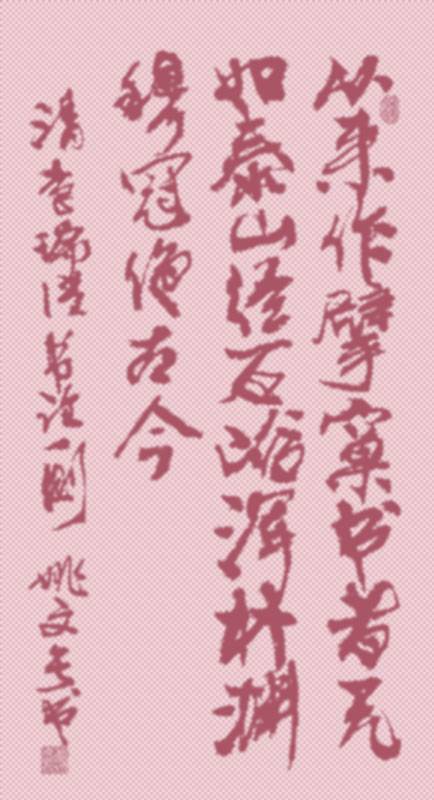 从来作擘窠书者无
如泰山经石峪浑朴渊
穆冠绝古今
清李瑞清书论一则 姚文